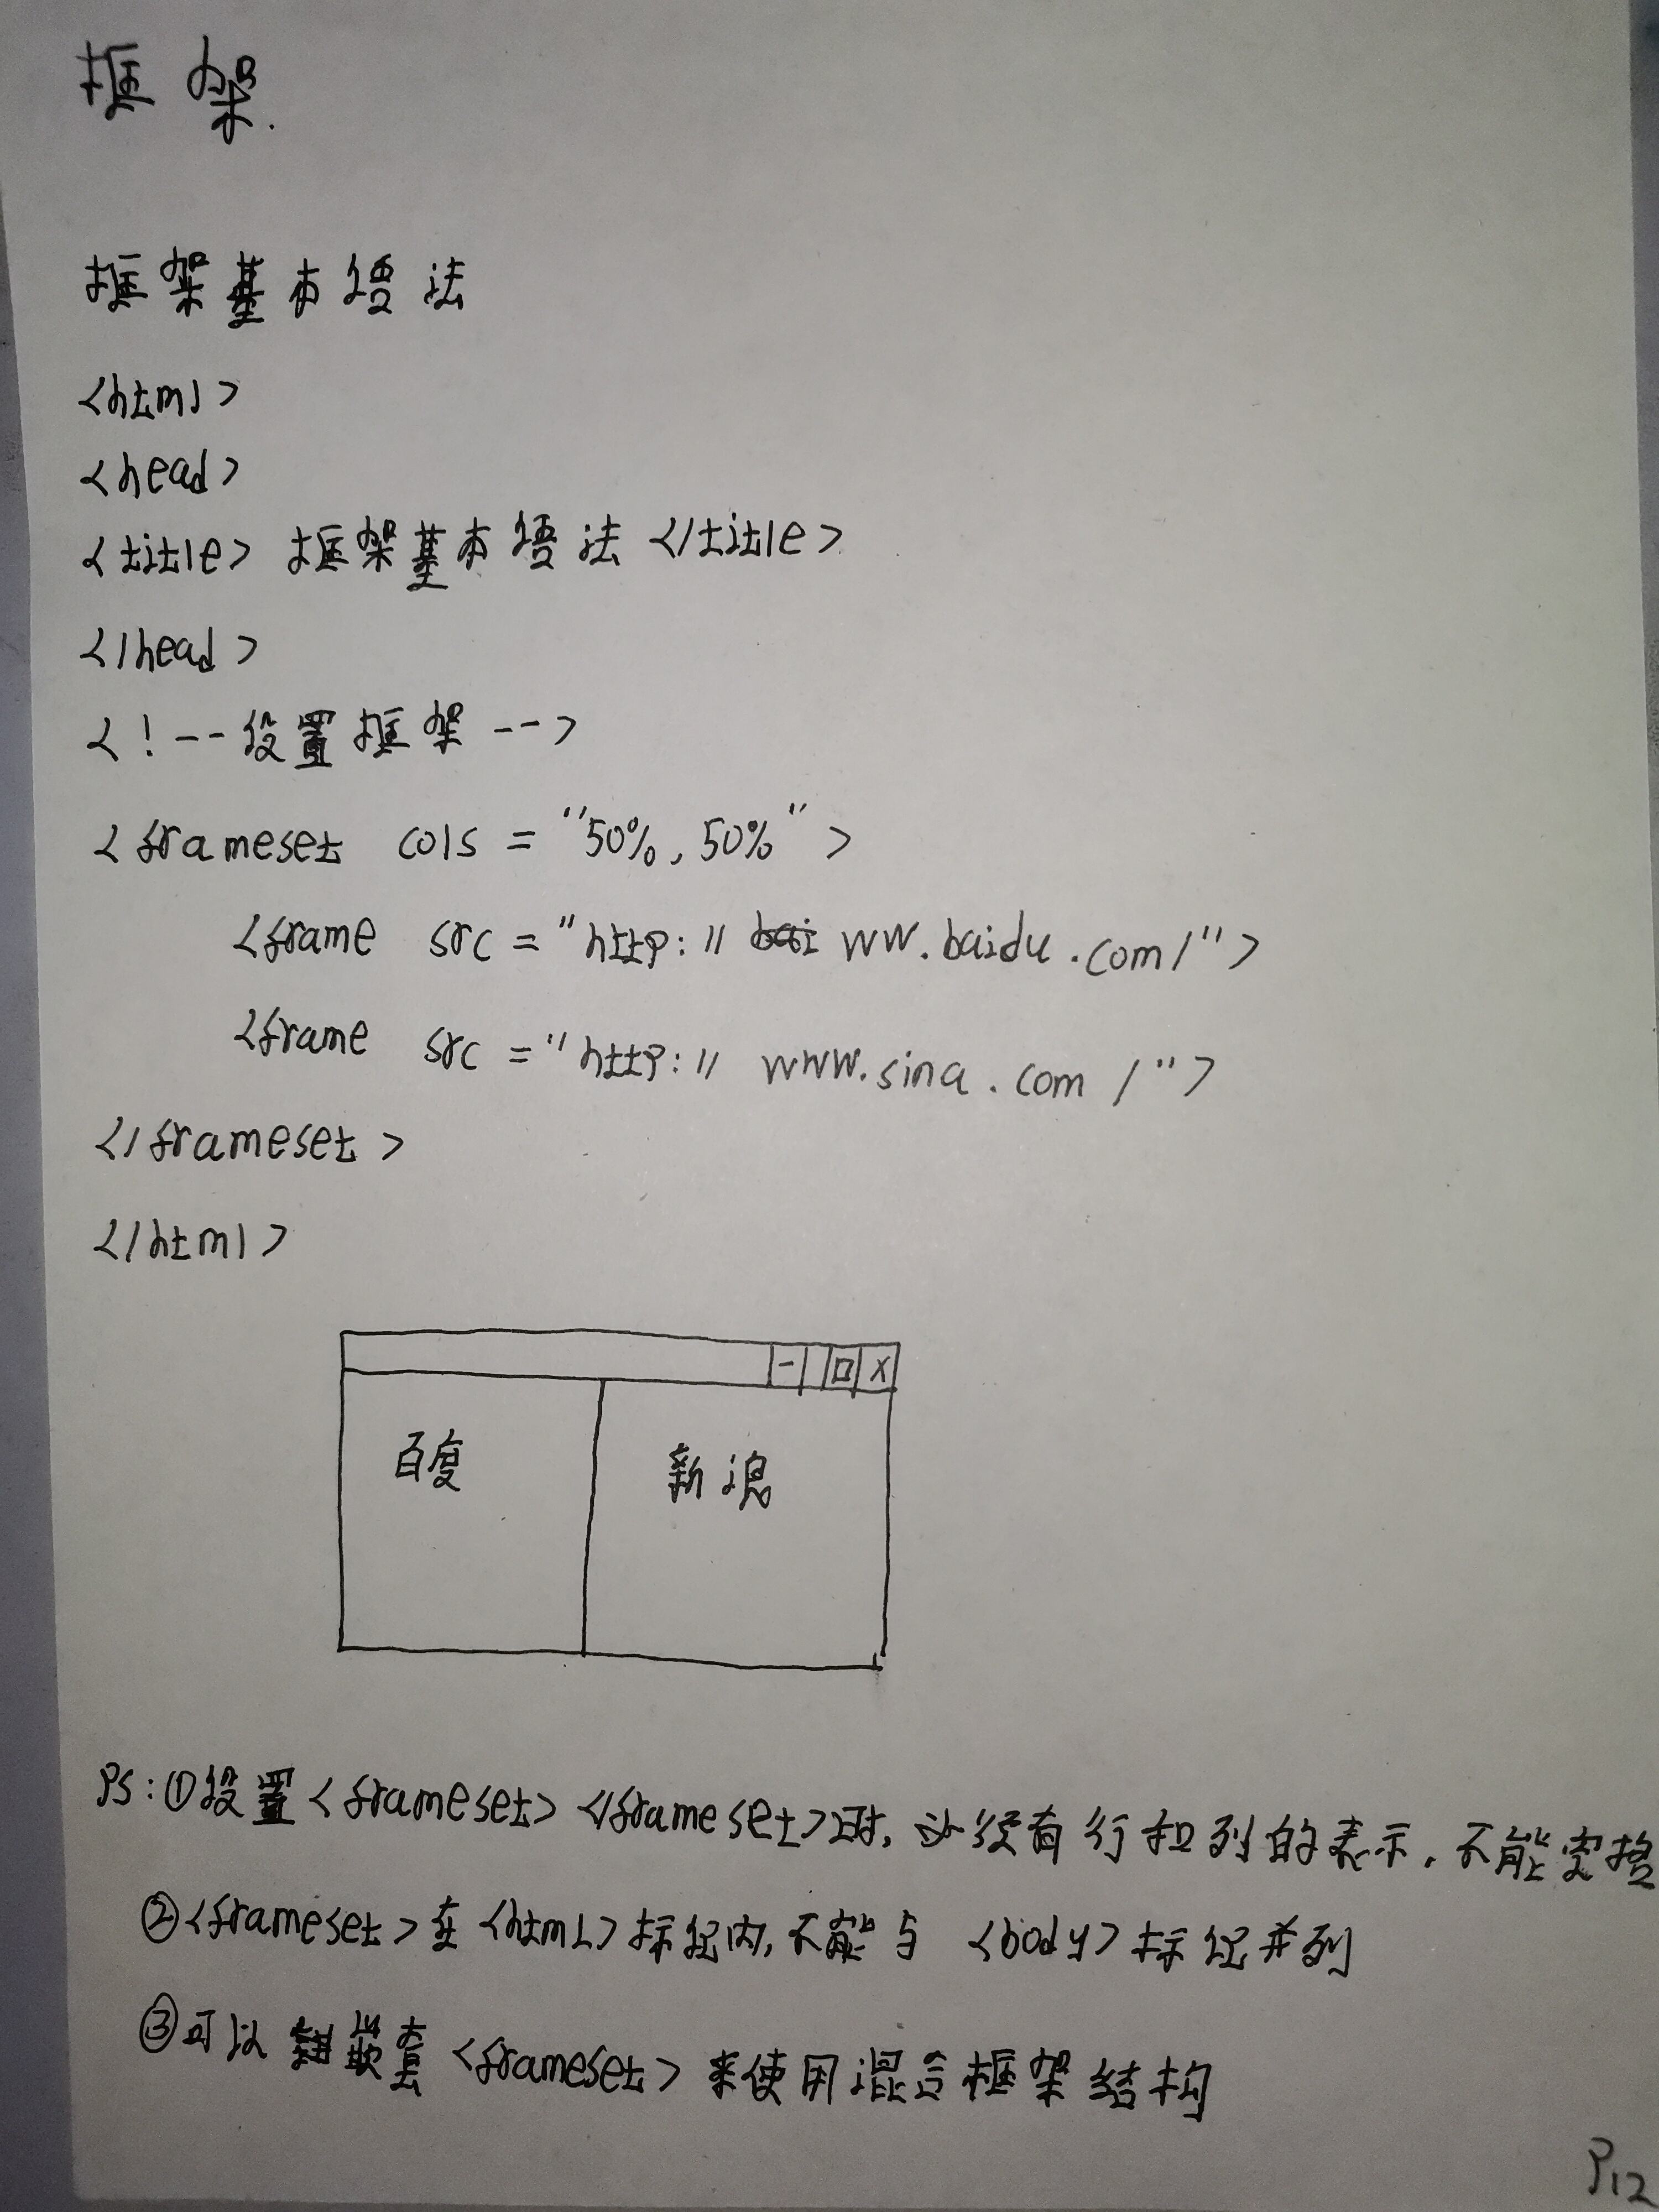 框架.
框架基本语法
<html>
<head>
<title> 框架基本语法 </title>
</head>
<!--设置框架-->
<frameset cols = "50%, 50%">
<frame src = "http:// ww.baidu.com/">
<frame src = "http:// www.sina.com/">
</frameset>
</html>
- □ X
百度 新浪
Ps:①设置<frameset></frameset>时,必须有行和列的表示,不能空格
②<frameset>在<html>标记内,不能与 <body>标记并列
③可以嵌套<frameset>来使用混合框架结构
P12